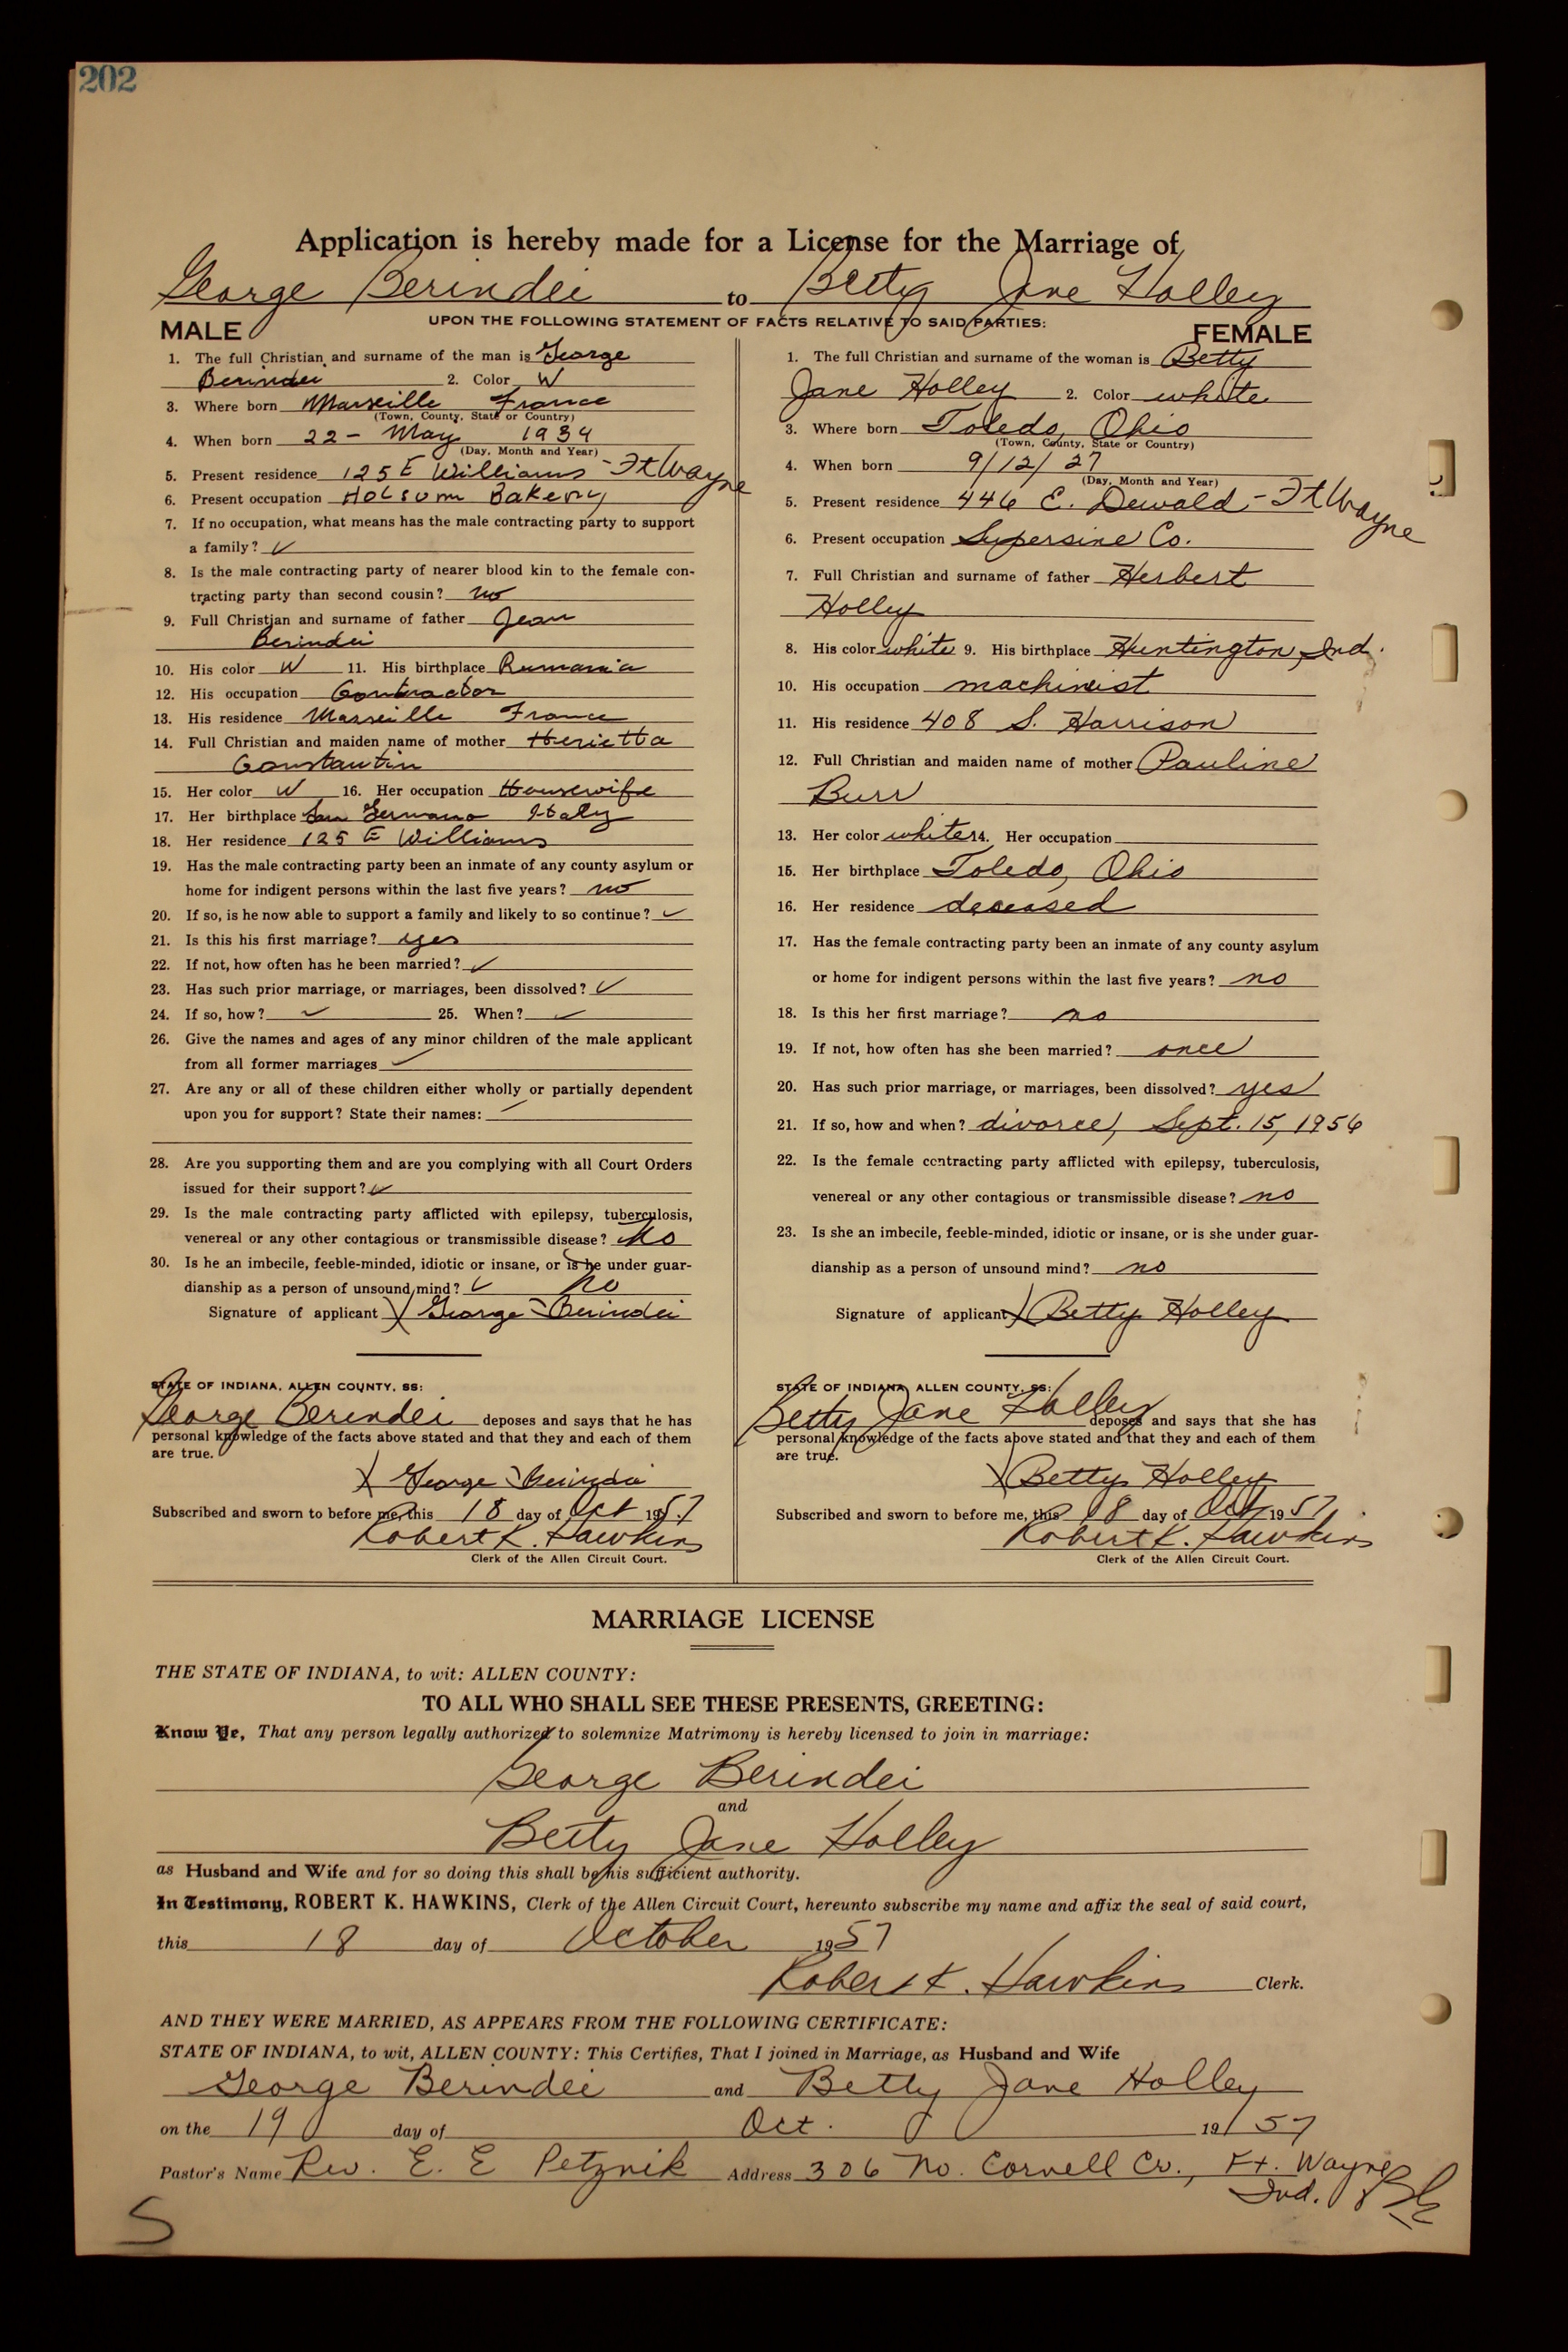 202
Application is hereby made for a License for the Marriage of
George Berindei to Betty Jane Holley
UPON THE FOLLOWING STATEMENT OF FACTS RELATIVE TO SAID PARTIES:
MALE
1. The full Christian and surname of the man is George
Berindei 2. Color W
3. Where born Marseille France
(Town, County, State or Country)
4. When born 22 - May 1934
(Day, Month and Year)
5. Present residence 125 E Williams - Ft Wayne
6. Present occupation Holsum Bakery
7. If no occupation, what means has the male contracting party to support
a family? ✓
8. Is the male contracting party of nearer blood kin to the female con-
tracting party than second cousin? no
9. Full Christian and surname of father Jean
Berindei
10. His color W 11. His birthplace Rumania
12. His occupation Contractor
13. His residence Marseille France
14. Full Christian and maiden name of mother Herietta
Constantin
15. Her color W 16. Her occupation Housewife
17. Her birthplace San Germano Italy
18. Her residence 125 E Williams
19. Has the male contracting party been an inmate of any county asylum or
home for indigent persons within the last five years? no
20. If so, is he now able to support a family and likely to so continue? ✓
21. Is this his first marriage? yes
22. If not, how often has he been married? ✓
23. Has such prior marriage, or marriages, been dissolved? ✓
24. If so, how? ✓ 25. When? ✓
26. Give the names and ages of any minor children of the male applicant
from all former marriages ✓
27. Are any or all of these children either wholly or partially dependent
upon you for support? State their names:
28. Are you supporting them and are you complying with all Court Orders
issued for their support? ✓
29. Is the male contracting party afflicted with epilepsy, tuberculosis,
venereal or any other contagious or transmissible disease? No
30. Is he an imbecile, feeble-minded, idiotic or insane, or is he under guar-
dianship as a person of unsound mind? ✓ no
Signature of applicant X George Berindei
STATE OF INDIANA, ALLEN COUNTY, SS:
George Berindei deposes and says that he has
personal knowledge of the facts above stated and that they and each of them
are true.
X George Berindei
Subscribed and sworn to before me, this 18 day of Oct 1957
Robert K. Hawkins
Clerk of the Allen Circuit Court.
FEMALE
1. The full Christian and surname of the woman is Betty
Jane Holley 2. Color white
3. Where born Toledo, Ohio
(Town, County, State or Country)
4. When born 9/12/27
(Day, Month and Year)
5. Present residence 446 E. Dewald - Ft Wayne
6. Present occupation Supersine Co.
7. Full Christian and surname of father Herbert
Holley
8. His color white 9. His birthplace Huntington, Ind.
10. His occupation machinist
11. His residence 408 S. Harrison
12. Full Christian and maiden name of mother Pauline
Burr
13. Her color white 14. Her occupation
15. Her birthplace Toledo, Ohio
16. Her residence deceased
17. Has the female contracting party been an inmate of any county asylum
or home for indigent persons within the last five years? no
18. Is this her first marriage? no
19. If not, how often has she been married? once
20. Has such prior marriage, or marriages, been dissolved? yes
21. If so, how and when? divorce, Sept. 15, 1956
22. Is the female contracting party afflicted with epilepsy, tuberculosis,
venereal or any other contagious or transmissible disease? no
23. Is she an imbecile, feeble-minded, idiotic or insane, or is she under guar-
dianship as a person of unsound mind? no
Signature of applicant X Betty Holley
STATE OF INDIANA, ALLEN COUNTY, SS:
Betty Jane Holley deposes and says that she has
personal knowledge of the facts above stated and that they and each of them
are true.
X Betty Holley
Subscribed and sworn to before me, this 18 day of Oct 1957
Robert K. Hawkins
Clerk of the Allen Circuit Court.
MARRIAGE LICENSE
THE STATE OF INDIANA, to wit: ALLEN COUNTY:
TO ALL WHO SHALL SEE THESE PRESENTS, GREETING:
Know Ye, That any person legally authorized to solemnize Matrimony is hereby licensed to join in marriage:
George Berindei
and
Betty Jane Holley
as Husband and Wife and for so doing this shall be his sufficient authority.
In Testimony, ROBERT K. HAWKINS, Clerk of the Allen Circuit Court, hereunto subscribe my name and affix the seal of said court,
this 18 day of October 1957
Robert K. Hawkins Clerk.
AND THEY WERE MARRIED, AS APPEARS FROM THE FOLLOWING CERTIFICATE:
STATE OF INDIANA, to wit, ALLEN COUNTY: This Certifies, That I joined in Marriage, as Husband and Wife
George Berindei and Betty Jane Holley
on the 19 day of Oct. 1957
Pastor's Name Rev. E. E Petznik Address 306 No. Cornell Cr., Ft. Wayne
Ind.
S